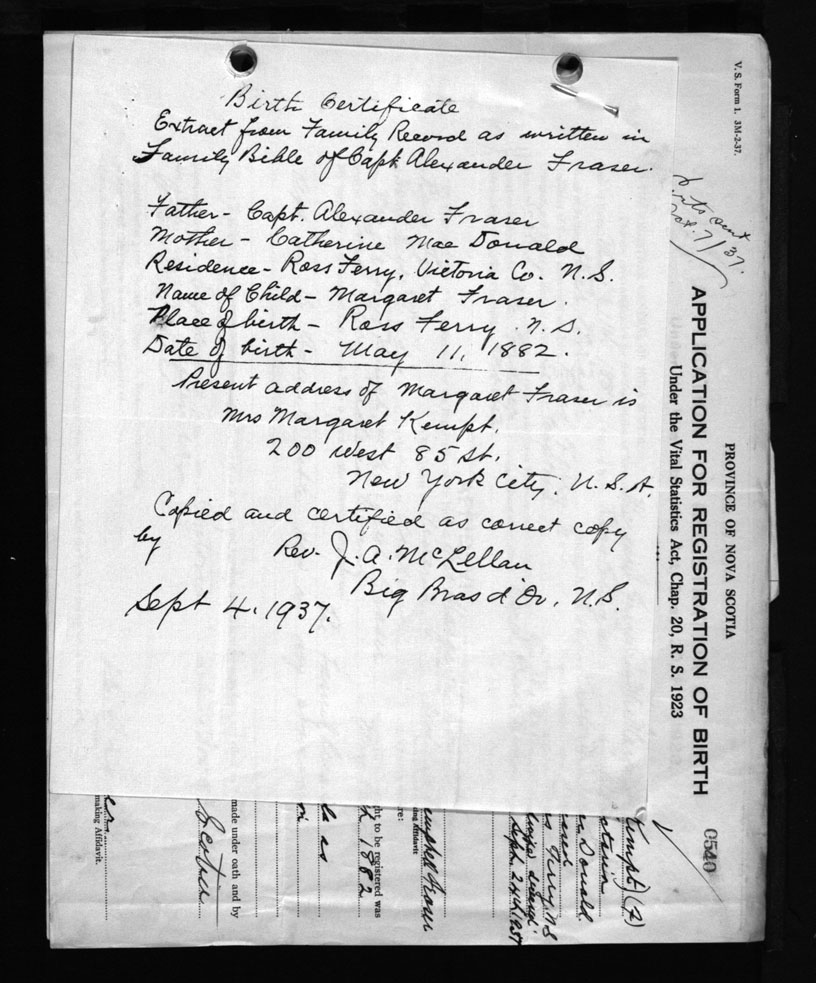 Birth Certificate
Extract from Family Record as written in
Family Bible of Capt Alexander Fraser.
Father - Capt. Alexander Fraser
Mother - Catherine Mac Donald
Residence - Ross Ferry, Victoria Co. N.S.
Name of Child - Margaret Fraser.
Place of birth - Ross Ferry N.S.
Date of birth - May 11, 1882.
Present address of Margaret Fraser is
Mrs Margaret Kempt.
200 West 85 St.
New York City, U.S.A.
Copied and certified as correct copy
by Rev. J. A. McLellan
Big Bras d'Or, N.S.
Sept 4, 1937.
V. S. Form 1. 3M-2-37.
7/37.
PROVINCE OF NOVA SCOTIA
APPLICATION FOR REGISTRATION OF BIRTH
Under the Vital Statistics Act, Chap. 20, R. S. 1923
0540
Kempt) (F)
Donald
Ferry, N.S
Sept. 24th 1937
Fraser
ding Affidavit
re:
ht to be registered was
1882
la as
made under oath and by
Scotia
making Affidavit.